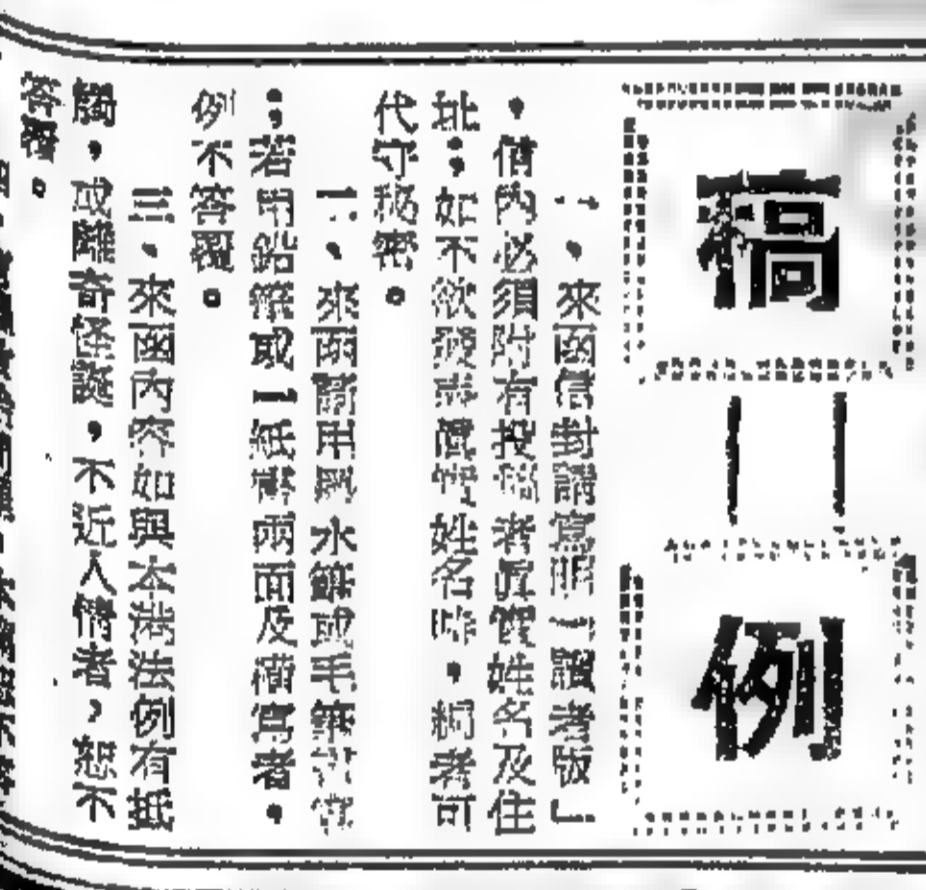 稿例
一，來函信封請寫明「讀者版」
，信內必須附有投稿者眞實姓名及住
址；如不欲發表眞實姓名時，編者可
代守秘密。
二，來函請用墨水筆或毛筆
；若用鉛筆或一紙書兩面及橫寫者，
例不答覆。
三，來函內容如與本港法例有抵
觸，或離奇怪誕，不近人情者，恕不
答覆。